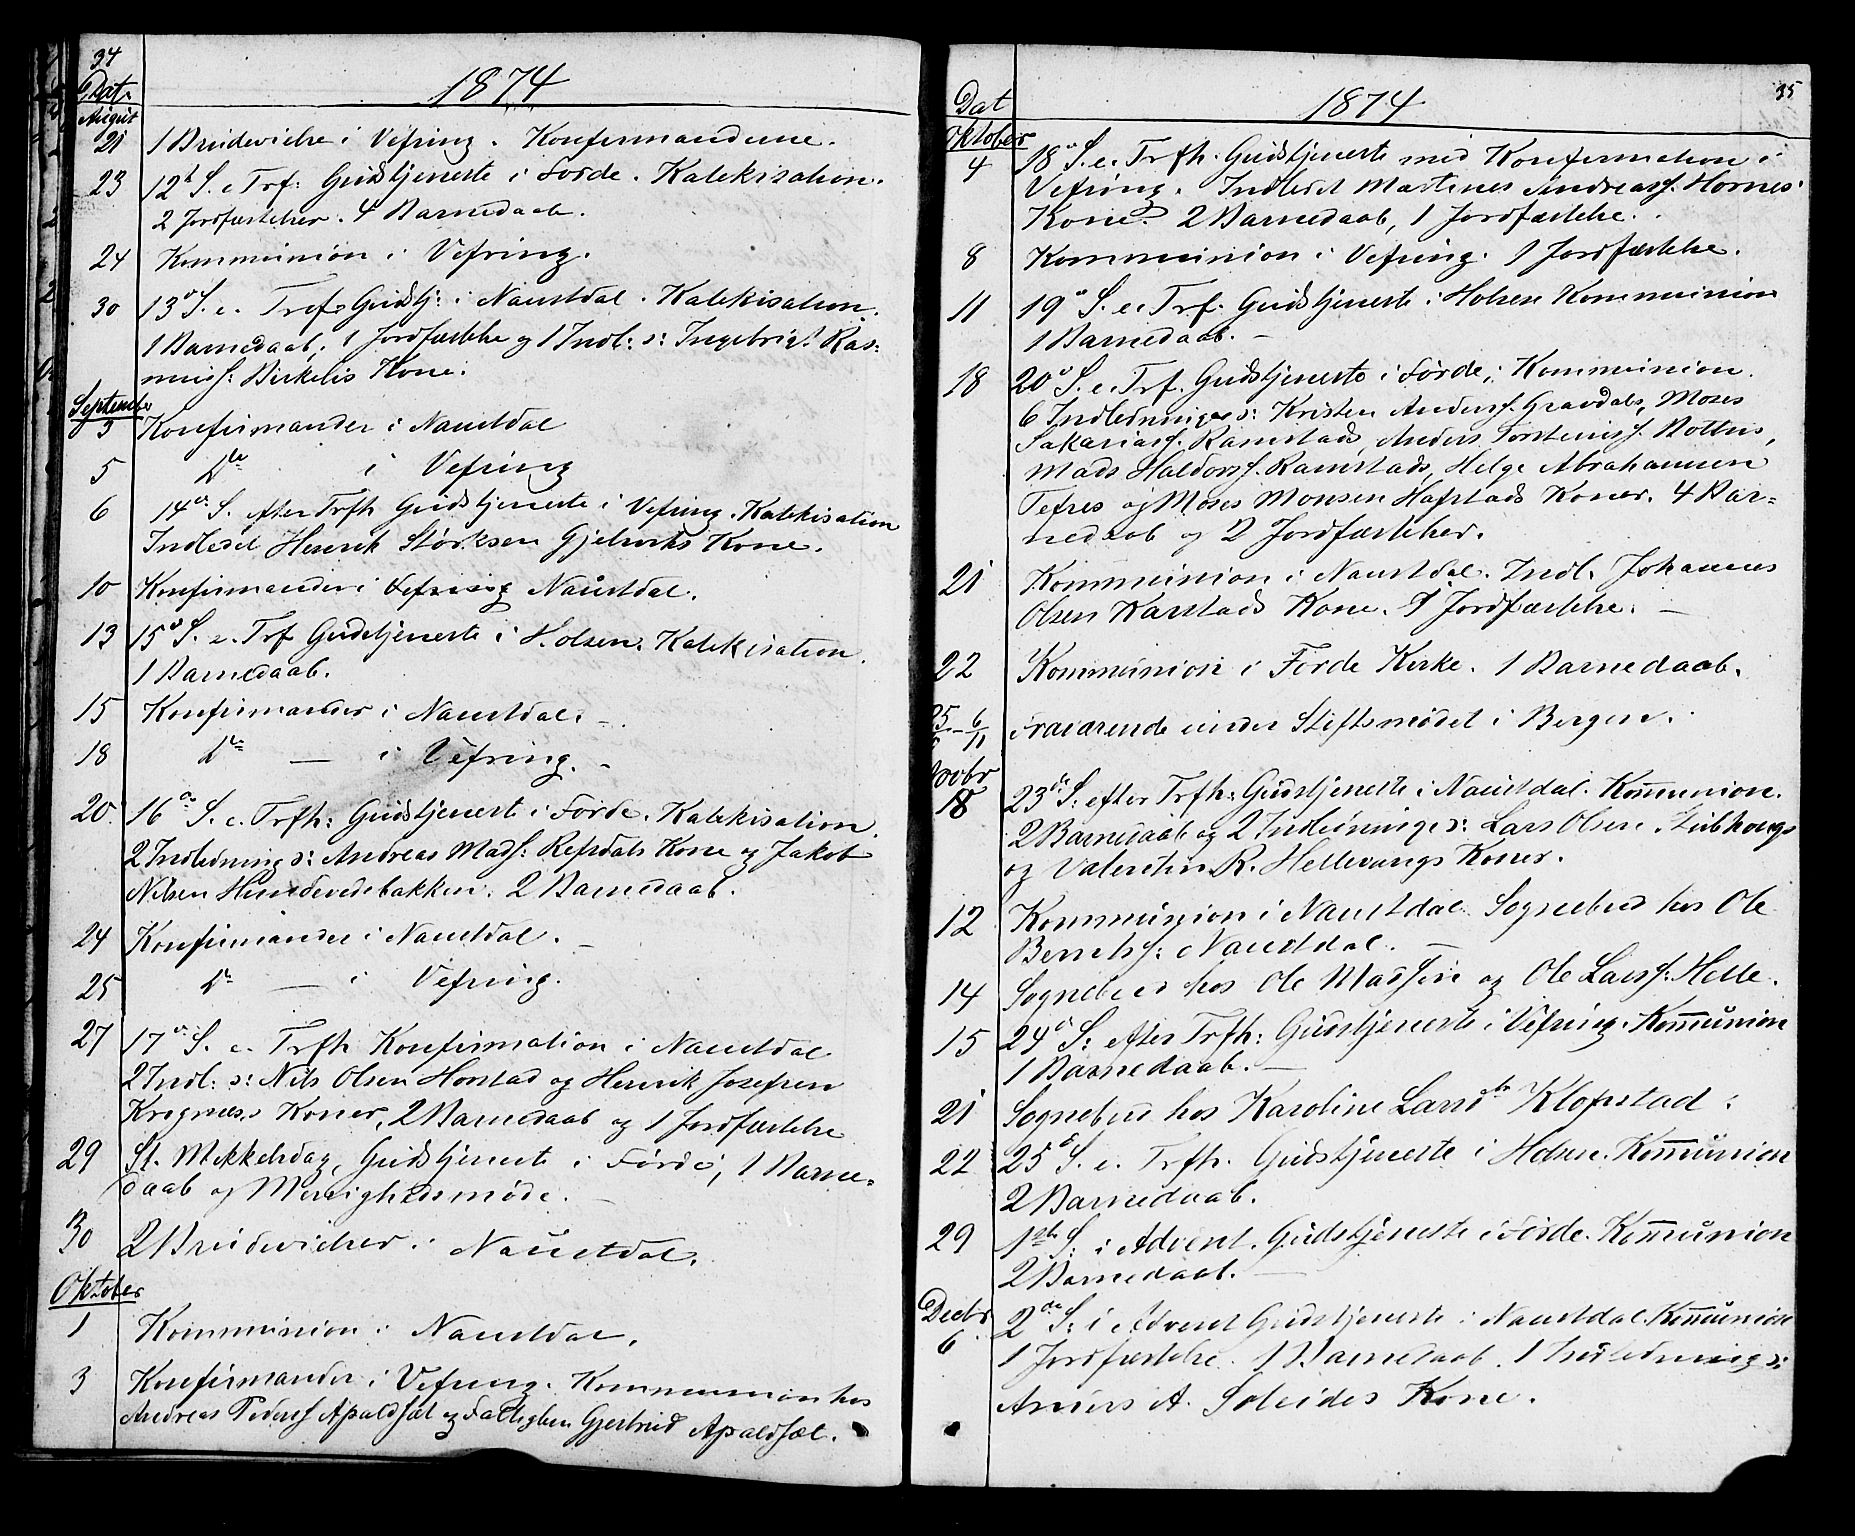 34
Dat.
1874
August
21 1 Brudevielse i Vefring. Konfirmanderne.
23 12te S. e Trf: Gudstjeneste i Förde. Katekisation.
2 Jordfæstelser. 4 Barnedaab.
24 Kommunion i Vefring.
30 13de S. e. Tref. Gudstj: i Naustdal. Katekisation.
1 Barnedaab, 1 Jordfæstelse og 1 Indl: s: Ingebrigt Ras:
muss: Birkelis Kone.
September
3 Konfirmander i Naustdal
5 Do i Vefring
6 14de S. efter Trfh Gudstjeneste i Vefring. Katekisation
Indledet Henrik Störksen Gjelsviks Kone.
10 Konfirmander i Vefring Naustdal.
13 15de S. e. Trf Gudstjeneste i Holsen. Katekisation.
1 Barnedaab.
15 Konfirmander i Naustdal. –
18 Do — i Vefring. –
20 16de S. e. Trfh: Gudstjenest i Förde. Katekisation.
2 Indledning s: Andreas Mads: Refsdals Kone og Jakob
Nilsen Hundevedebakken. 2 Barnedaab.
24 Konfirmander i Naustdal. –
25 Do — i Vefring.
27 17de S. e. Trfh Konfirmation i Naustdal
2 Indl: s: Nils Olsen Horstad og Henrik Josefsen
Krognæss Koner, 2 Barnedaab og 1 Jordfæstelse
29 St. Mikkelsdag, Gudstjeneste i Förde, 1 Barne-
daab og Menighedsmöde. –
30 2 Brudevielser i Naustdal.
Oktober
1 Kommunion i Naustdal.
3 Konfirmander i Vefring. Kommunion hos
Andreas Pederss Apaldsæt og Fattiglem Gjertrud Apaldsæt.
35
Dat
1874
Oktober
4 18de S. e. Trfh. Gudstjeneste med Konfirmation i
Vefring. Indledet Martinus Andreass. Hornes
Kone. 2 Barnedaab, 1 Jordfæstelse.
8 Kommunion i Vefring. 1 Jordfæstelse.
11 19de S. e. Trf. Gudstjeneste i Holsen Kommunion
1 Barnedaab. –
18 20de S. e. Trf. Gudstjeneste i Förde, Kommunion.
6 Indledninger s: Kristen Anderss. Gravdals, Moses
Sakariass. Ramstads, Anders Torsteins. Bottns,
Mads Haldorss. Ramstads, Helge Abrahamsen
Tefres og Moses Monsen Hafstads Koner. 4 Bar-
nedaab og 2 Jordfæstelser.
21 Kommunion i Naustdal. Indl. Johannes
Olsen Karstads Kone. 1 Jordfæstelse. –
22 Kommunion i Förde Kirke. 1 Barnedaab.
25 – 6/11 Fraværende under Stiftsmödet i Bergen.
Novbr
8 23de S: efter Trfh: Gudstjeneste i Naustdal. Kommunion.
2 Barnedaab og 2 Indledninge s: Lars Olsen
og Valentin R. Hellevangs Koner.
12 Kommunion i Naustdal. Sognebud hos Ole
Bernts: Naustdal. –
14 Sognebud hos Ole Madssen og Ole Larss: Helle.
15 24de S: efter Trfh: Gudstjeneste i Vefring. Kommunion
1 Barnedaab. –
21 Sognebud hos Karoline Larsdtr Klopstad.
22 25de S. e. Trfh. Gudstjeneste i Holsen. Kommunion
2 Barnedaab.
29 1ste S: i Advent. Gudstjeneste i Förde. Kommunion
2 Barnedaab. –
Decbr
6 2de S: i Advent Gudstjeneste i Naustdal. Kommunion
1 Jordfæstelse. 1 Barnedaab. 1 Indledning s:
Anders A. Soleides Kone.